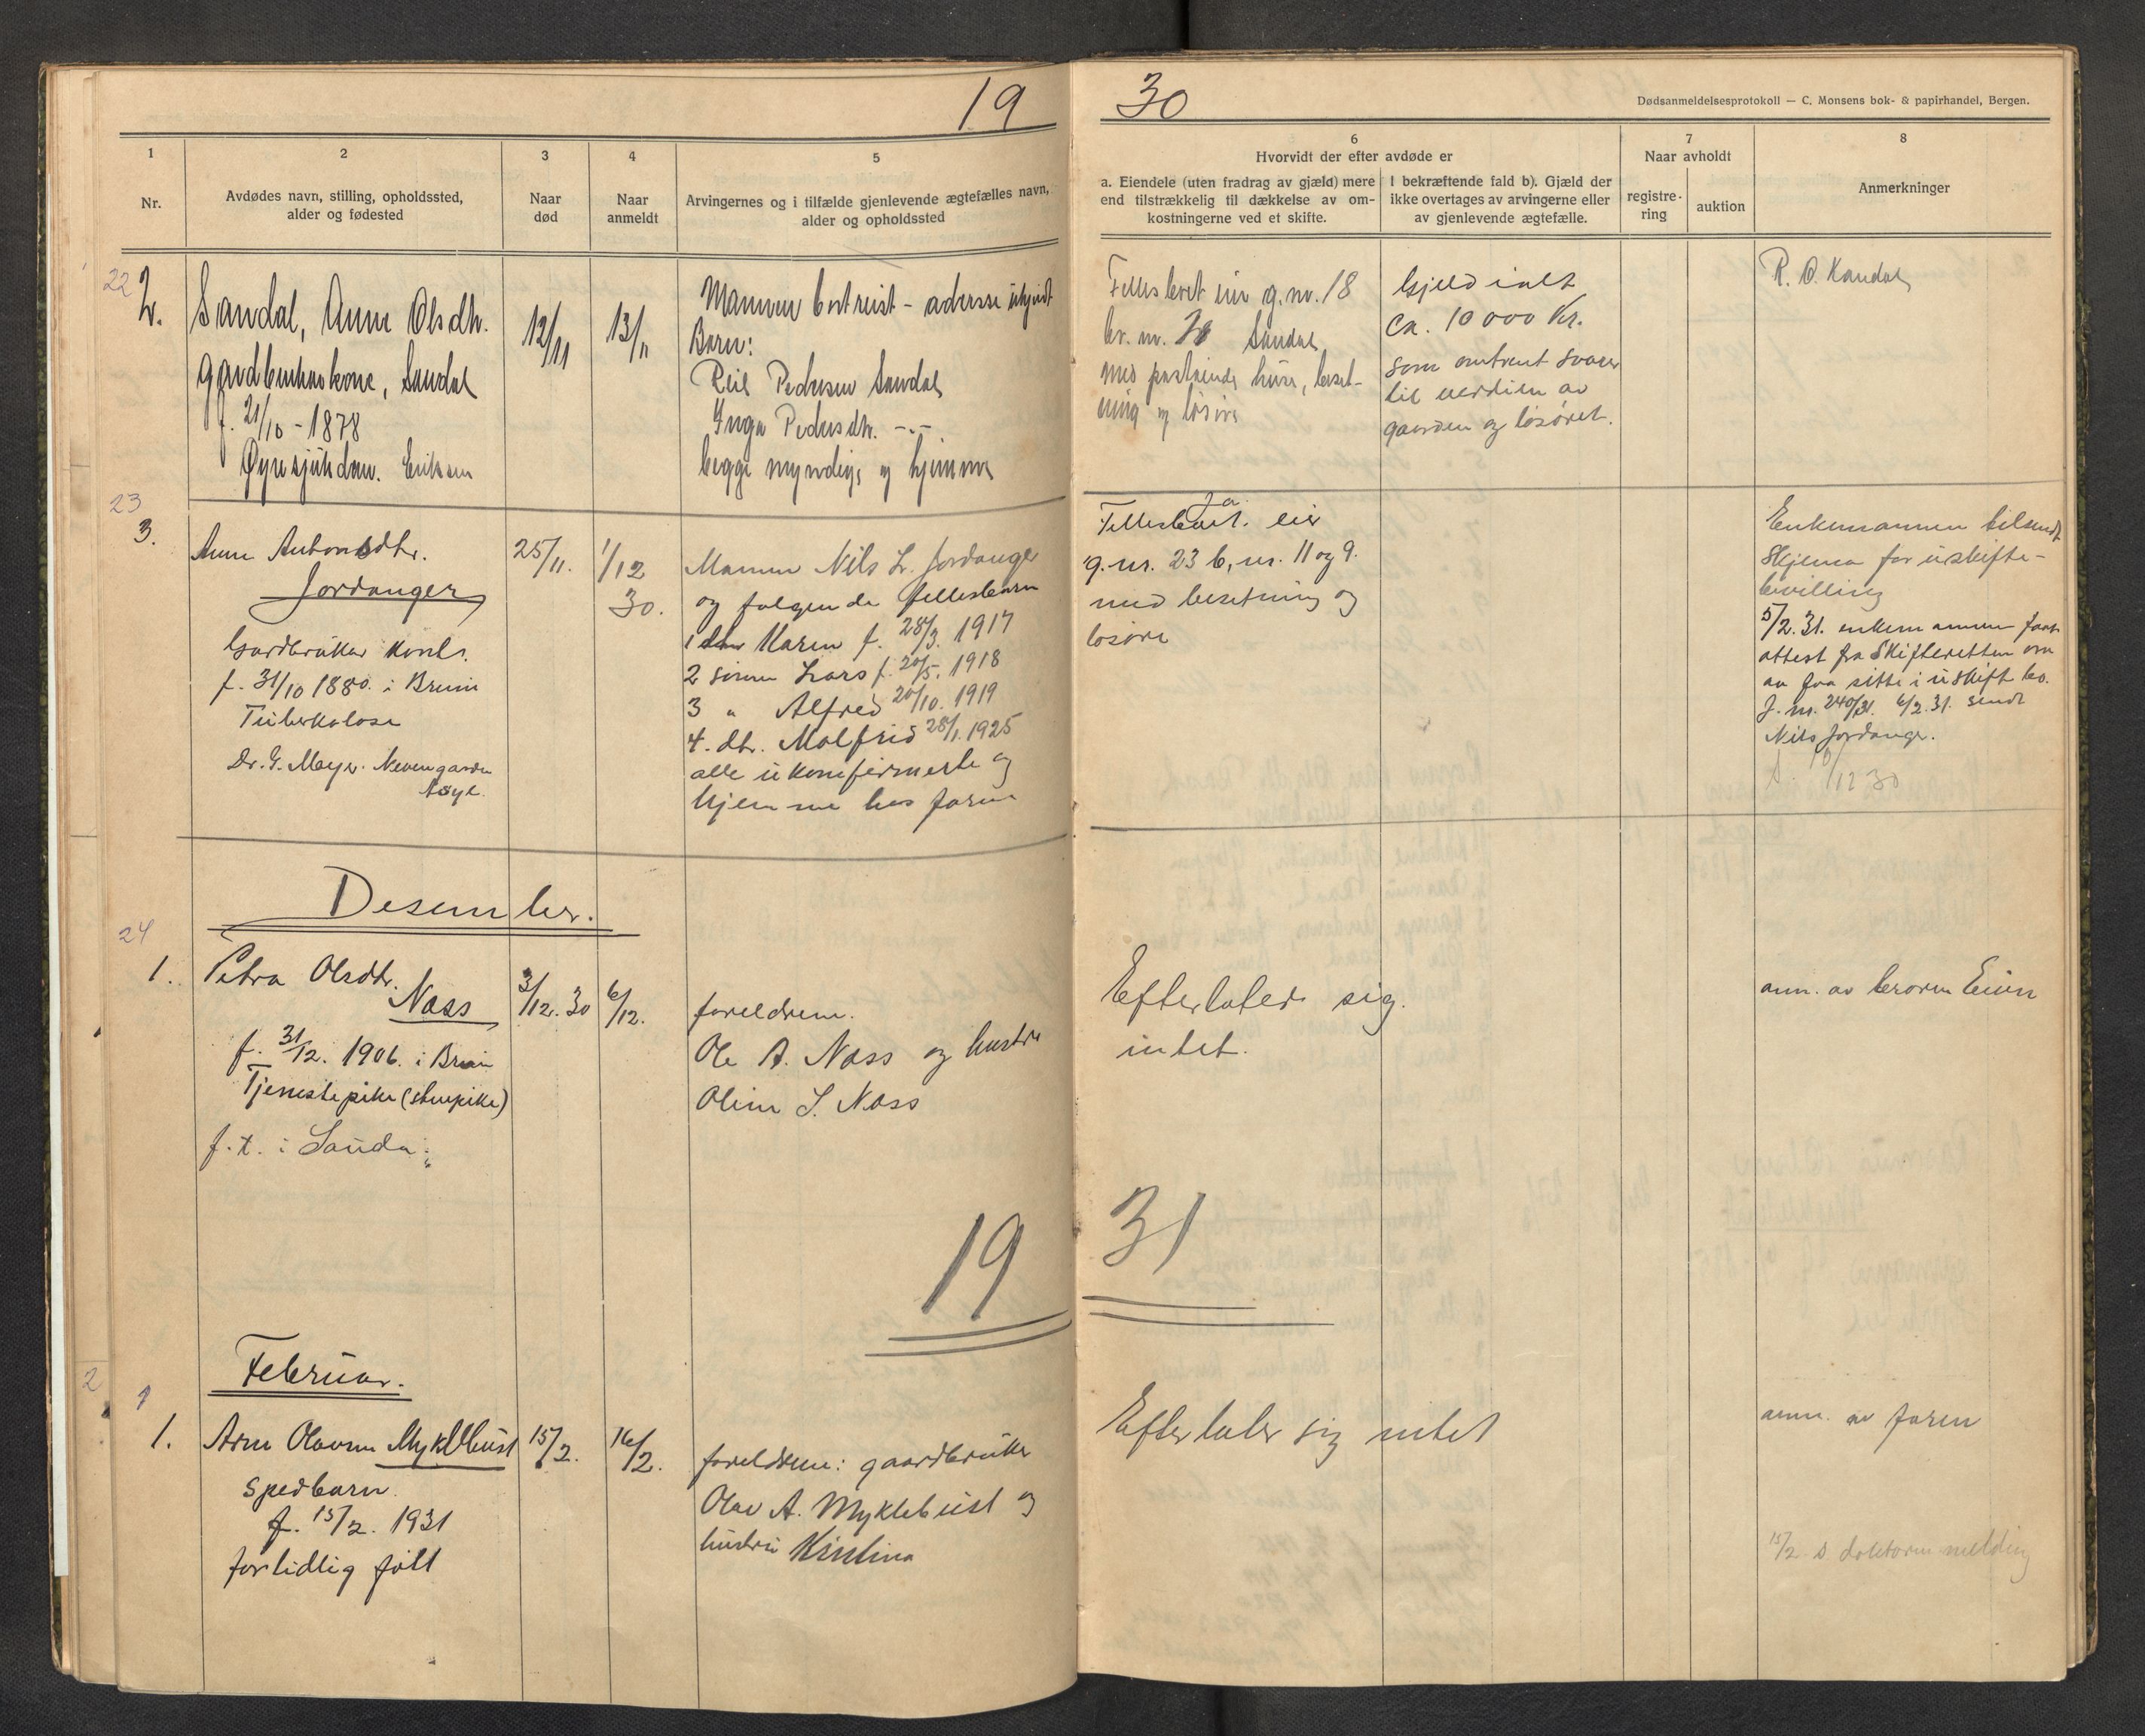 19
30
Dødsanmeldelsesprotokoll — C. Monsens bok- & papirhandel, Bergen.
1
2
3
4
5
6
7
8
Nr.
Avdødes navn, stilling, opholdssted,
alder og fødested
Naar
død
Naar
anmeldt
Arvingernes og i tilfælde gjenlevende ægtefælles navn,
alder og opholdssted
Hvorvidt der efter avdøde er
a. Eiendele (uten fradrag av gjæld) mere
end tilstrækkelig til dækkelse av om-
kostningerne ved et skifte.
I bekræftende fald b). Gjæld der
ikke overtages av arvingerne eller
av gjenlevende ægtefælle.
Naar avholdt
registre-
ring
auktion
Anmerkninger
22
2.
Sandal, Anne Olsdtr.
gardbrukarkone, Sandal
f. 21/10 - 1878
Øyresjukdom. Eriksen
12/11
13/11
Mannen bortreist - adresse ukjendt
Born:
Reie Pedersen Sandal
Inga Pedersdtr. -.-
begge myndige og hjemme
Fellesboet eier g.nr. 18
br. nr. Sandal
med paastaaende huse, beset-
ning og løsøre
Gjeld ialt
ca. 10 000 Kr.
som omtrent svarer
til verdien av
gaarden og løsøret.
R. O. Sandal
23
3.
Anne Antonsdtr.
Jordanger
Gardbrukar kone.
f. 31/10 1880. i Breim
Tuberkolose
Dr. G. Meyer. Nevengaarden
Asyl.
25/11.
1/12
30.
Mannen Nils L. Jordanger
og følgende fellesbarn
1 dtr Karen f. 28/3. 1917
2 sønn Lars f. 20/5. 1918
3 " Alfred 20/10. 1919
4. dtr. Målfrid 28/1. 1925
alle ukonfirmerte og
hjemme hos faren
Ja.
Fellesboet. eier
g.nr. 23 b.nr. 11 og 9.
med besetning og
løsøre
Enkemannen tilsendt
skjema for uskifte-
bevilling
5/2.31. enkemannen faat
attest fra Skifteretten om
av faa sitte i uskift bo.
J. nr. 240/31. 6/2.31. sendt
Nils Jordanger.
/12 30
Desember.
24
1.
Petra Olsdtr.
Nøss
f. 31/12. 1906. i Breim
Tjenestepike (stuepike)
f.t. i Sauda.
3/12. 30
6/12.
foreldrene.
Ole A. Nøss og hustru
Oline S. Nøss
Efterlater sig.
intet.
anm. av broren Eivin
19
31
Februar.
2
1
1.
Arne Olavsen Myklebust
spedbarn.
f. 15/2. 1931
fortidlig født
15/2.
16/2.
foreldrene: gaardbruker
Olav A. Myklebust og
hustru Kristina
Efterlater sig intet
anm. av faren
15/2. s doktorens melding